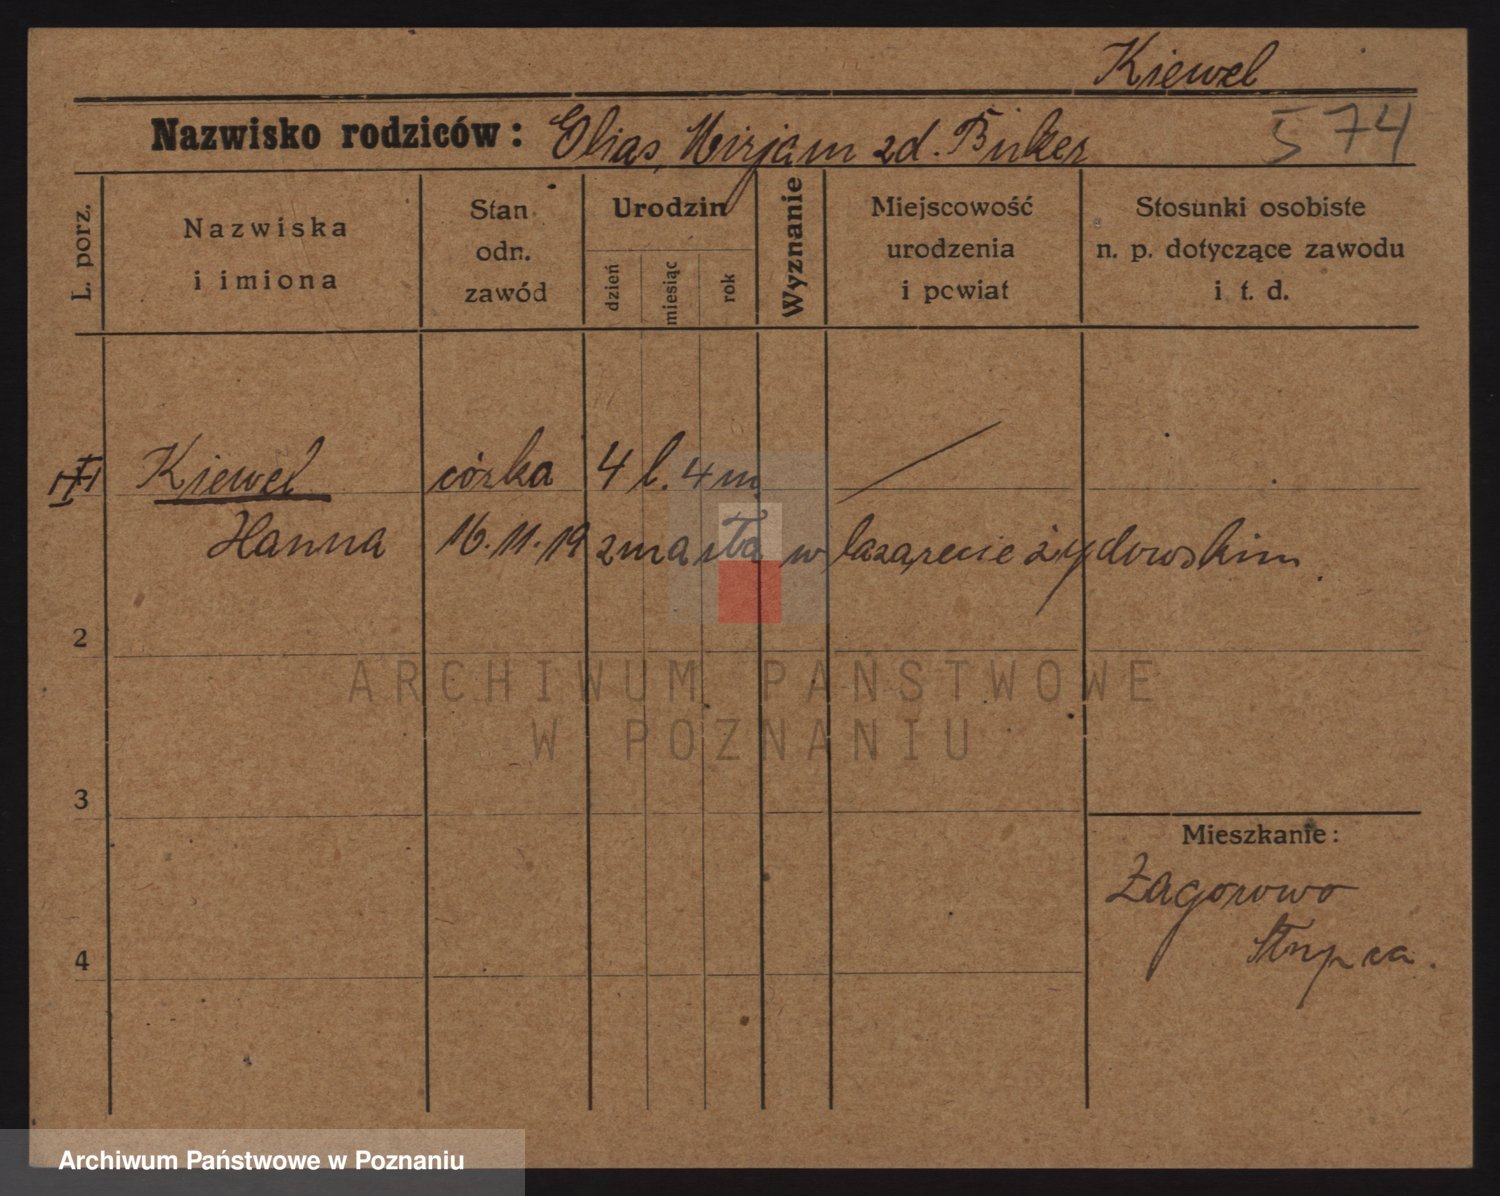 Kiewel
Nazwisko rodziców: Elias, Mirjam zd. Binker
574
L. porz.
Nazwiska
i imiona
Stan
odn.
zawód
Urodzin
dzień
miesiąc
rok
Wyznanie
Miejscowość
urodzenia
i powiat
Stosunki osobiste
n. p. dotyczące zawodu
i t. d.
Kiewel córka 4 l. 4 m
Hanna 16.11.19 zmarła w lazarecie żydowskim.
2
ARCHIWUM PAŃSTWOWE
W POZNANIU
3
Mieszkanie:
Zagorowo
Słupca.
4
Archiwum Państwowe w Poznaniu